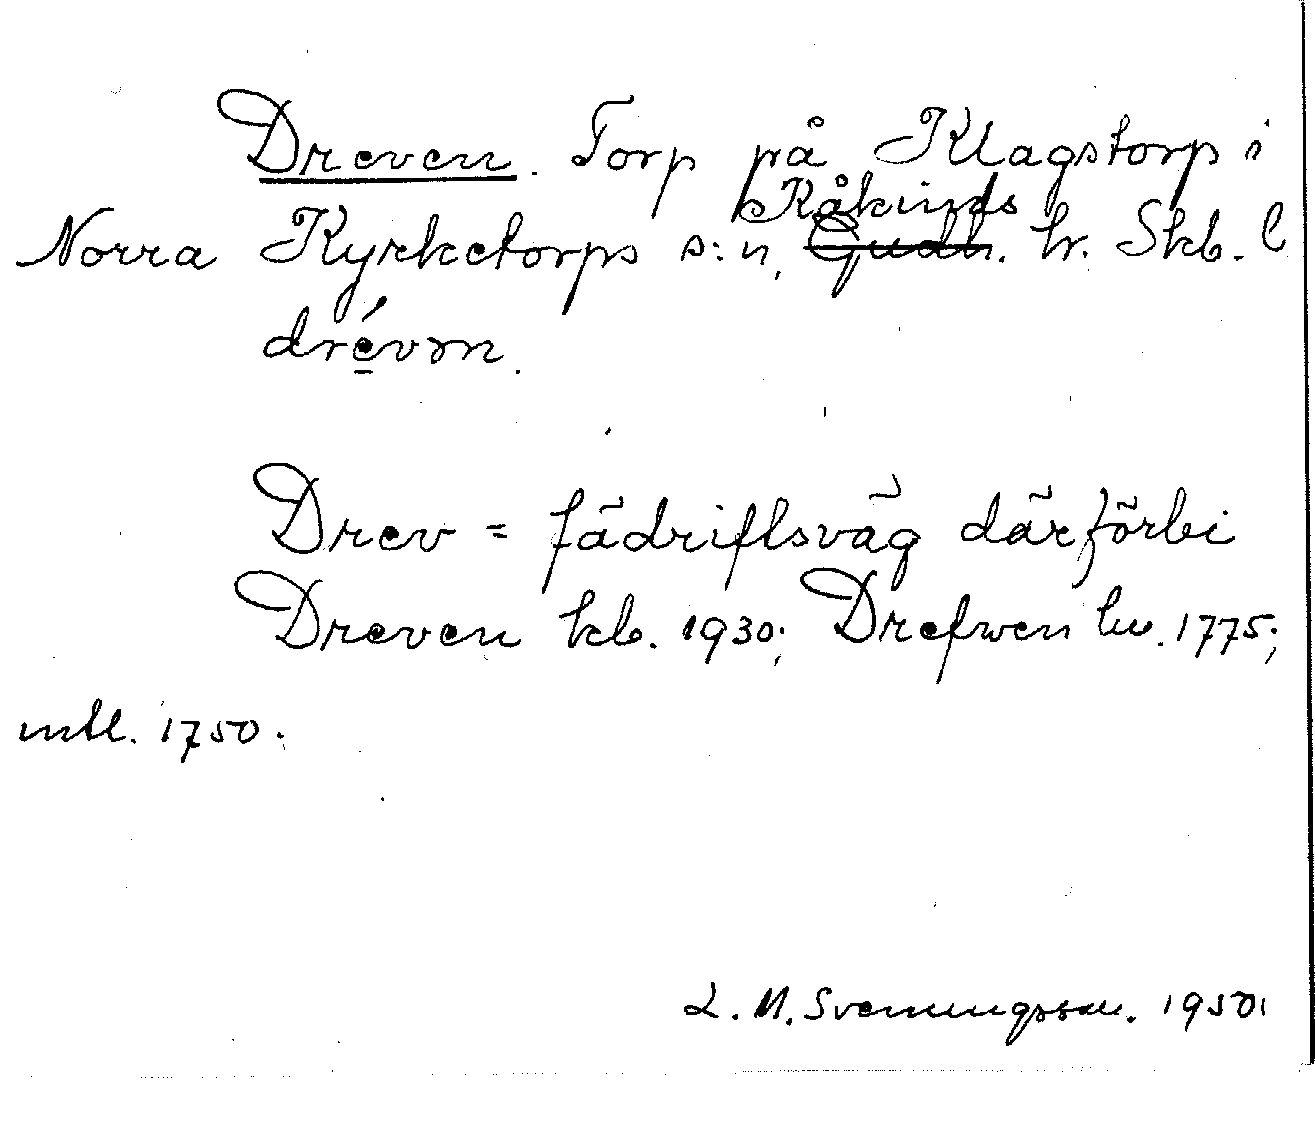 Dreven. Torp på Klagstorp i
Kåkinds
Norra Kyrketorps s:n, Gudh. hr. Skb. l
drévən.
Drev = fädriftsväg därförbi
Dreven kb. 1930; Drefwen hu. 1775;
mtl. 1750.
L. M. Svenungsson. 1950